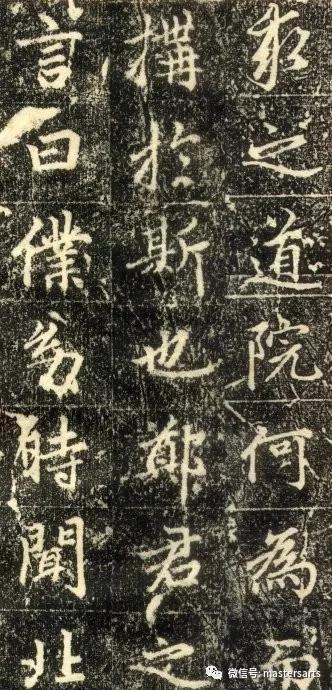 求之道院何為不
搆於斯也鄭君之
言曰僕幼時聞北
微信号: mastersarts